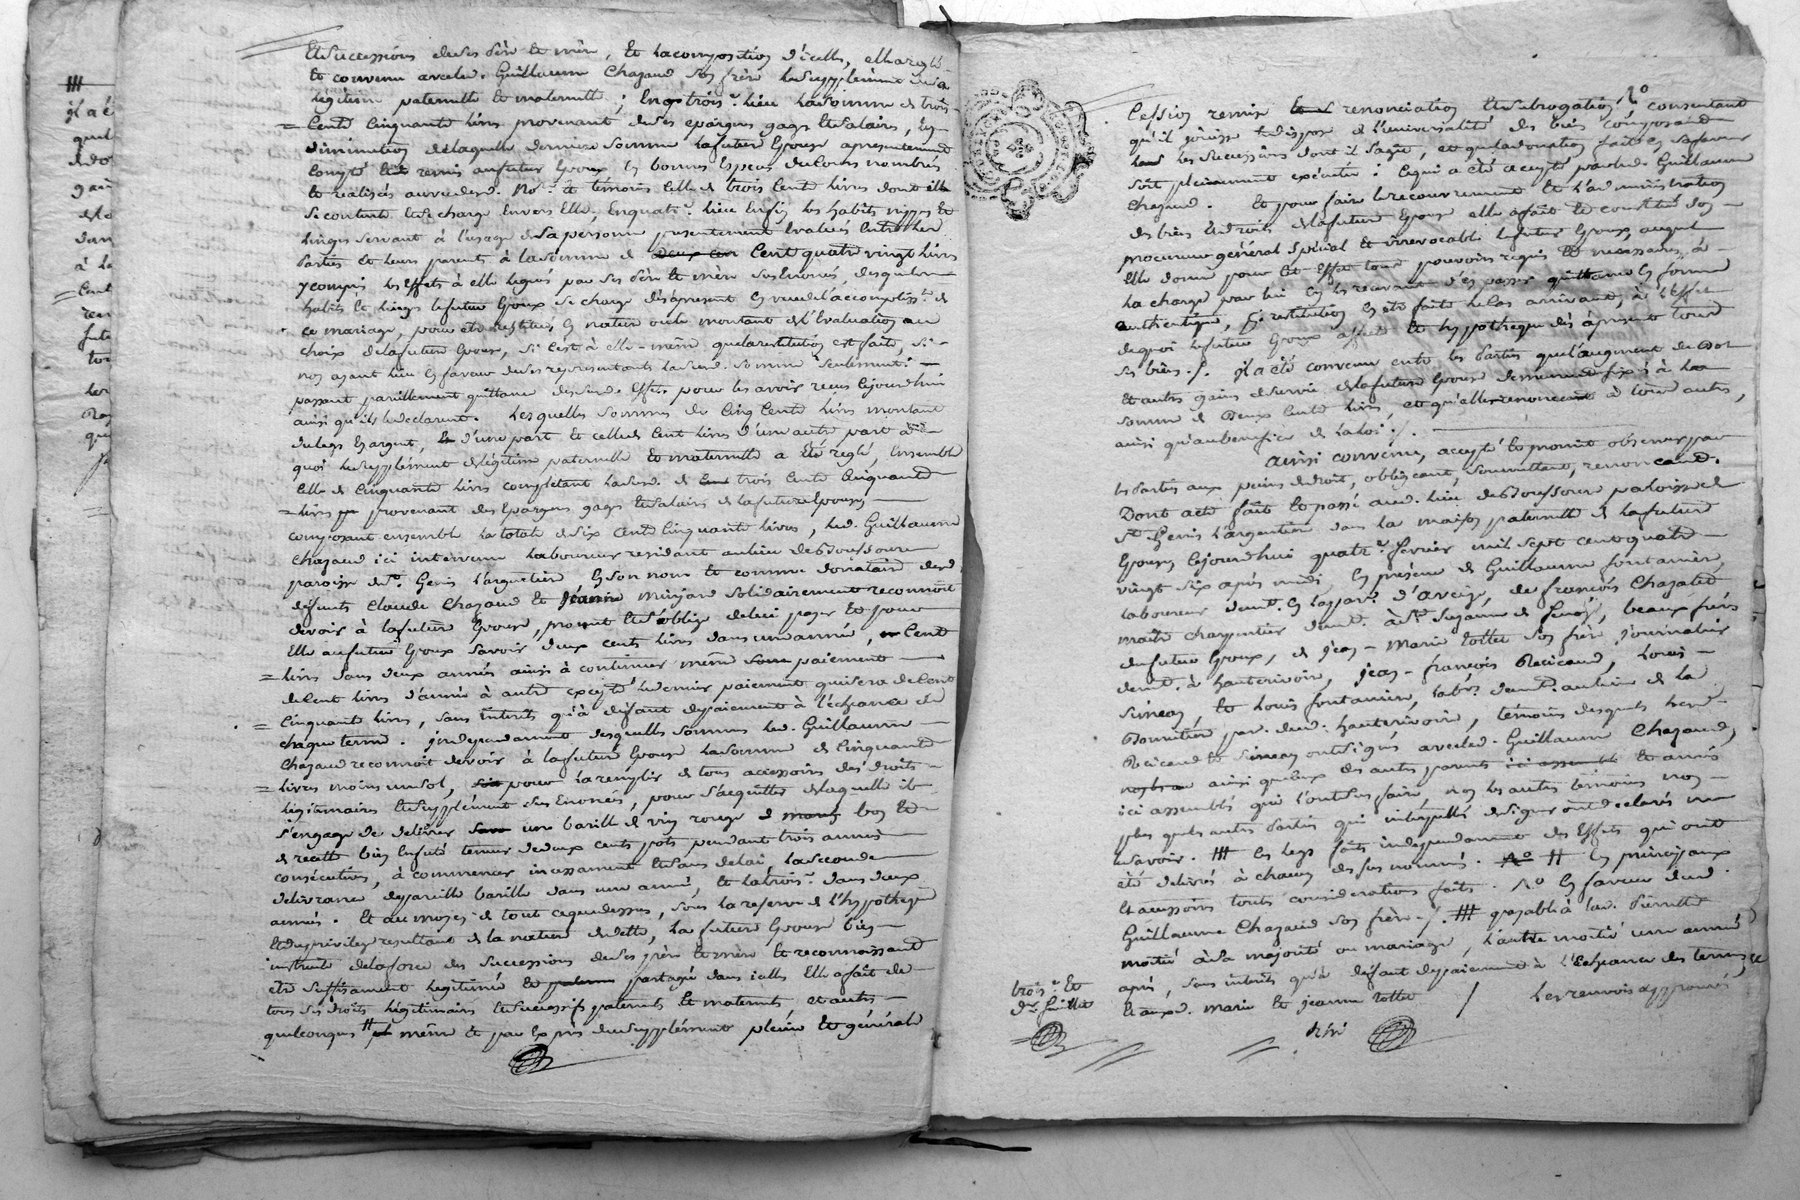 Et successions de ses père Et mère, Et la composition d'icelles, elle a reglé
Et convenu avec led. Guillaume Chazaud son frère le supplément de sa
légitime paternelle Et maternelle; En trois.e lieu la somme de trois
Cents Cinquante livres provenant de ses epargnes gages Et salaires, En
diminution de laquelle derniere somme la future Epouse a presentement
compté Et remis au futur Epoux En bonnes Especes du Cours nombrés
Et réalisés au vu desd. No.res & temoins Celle de trois Cent livres dont il
Se contente Et se charge Envers Elle, En quatr.e lieu Enfin les habits nippes Et
linges servant à l'usage de Sa personne presentement Evalués Entre les
Parties Et leurs parents à la somme de Cent quatre vingt livres
y compris les Effets à elle legués par ses père Et mère sus Enoncés, desquels
habits Et linges le futur Epoux se charge dès apresent En vue de l'accompliss.t de
ce mariage, pour être restitués En nature ou le montant de l'Evaluation au
choix de la future Epouse, Si C'est à elle-même que la restitution est faite, Si-
non ayant lieu En faveur de ses representants lad. somme seulement:
passant pareillement quittance desd. Effets pour les avoir reçus cejourd'hui
ainsi qu'ils le declarent. Lesquelles sommes de Cinq Cents livres montant
du legs En argent, d'une part Et celle de Cent livres d'une autre part à
quoi le supplément de légitime paternelle Et maternelle a été reglé, Ensemble
Celle de Cinquante livres completant lad. de trois Cents Cinquante
livres provenant des Epargnes gages Et salaires de la future Epouse
composant ensemble la totale de Six Cents Cinquante livres, led. Guillaume
Chazaud ici intervenu laboureur residant au lieu de Boussoure
paroisse de St. Genis l'argentière, En son nom Et comme donataire desd.
défunts Claude Chazaud Et Jeanne Murjard solidairement reconnoit
devoir à la future Epouse, promet Et s'oblige de lui payer Et pour
Elle au futur Epoux Savoir deux cents livres dans une année, Cent
livres dans deux années ainsi à continuer même paiement
de Cent livres d'année à autre excepté le dernier paiement qui sera de Cent
Cinquante livres, sans interets qu'à défaut de paiement à l'échéance de
chaque terme. independamment desquelles sommes led. Guillaume
Chazaud reconnoit devoir à la future Epouse la somme de Cinquante
livres moins un sol, pour la remplir de tous accessoires des droits
légitimaires Et supplément sus Enoncés, pour s'acquitter de laquelle il
s'engage de delivrer un baril de vin rouge bon Et
de recette bien Enfuté teneur de deux cents pots pendant trois années
consécutives, à commencer incessamment Et sans delai, la seconde
delivrance de pareille barille dans une année, Et la trois.e dans deux
années. Et au moyen de tout ce que dessus, sous la reserve de l'hypothèque
Et du privilege resultant de la nature de dette, la future Epouse bien
instruite de la force des successions de ses père Et mère Et reconnoissant
etre suffisament legitimée Et partagée dans icelles Elle a fait de
tous ses droits légitimaires Et successifs paternels Et maternels et autres
quelconques # même Et par Exprès du supplément pleine Et générale
Cession remise renonciation Et subrogation, N.o consentant
qu'il jouisse Et dispose de l'universalité des biens composants
les successions dont il s'agit, et que la donation faite En sa faveur
soit pleinement exécutée: Ce qui a été accepté par led. Guillaume
Chazaud. Et pour faire le recouvrement Et l'administration
des biens Et droits de la future Epouse elle a fait Et constitué son
procureur général spécial Et irrevocable le futur Epoux auquel
Elle donne pour Cet Effet tous pouvoirs requis Et necessaires, à
la charge par lui En les recevant d'en passer quittance En forme
authentique, Si restitution En etre faite le Cas arrivant, à l'Effet
de quoi le futur Epoux affecte Et hypotheque dès à present tous
ses biens./. il a été convenu entre les Parties que l'augment de Dot
Et autres gains de survie de la future Epouse demeurent fixés à la
somme de Deux Cents livres, et qu'elle renonce à tous autres,
ainsi qu'au benefice de la loi./.
ainsi convenu, accepté Et promit observer par
les Parties aux peines de droit, obligeant, soumettant, renonceand.
Dont acte fait Et passé aud. lieu de Boussoure paroisse de
St. Genis l'argentière dans la maison paternelle de la future
Epouse cejourd'hui quatr.e fevrier mil sept cent quatre
vingt six après midi, En présence de Guillaume fontanier,
laboureur dem.t En la par.sse d'aveize, de françois Chazalet
maitre charpentier dem.t à Ste. Suzanne de fenoy, beaux freres
du futur Epoux, de Jean-Marie Collet son frère, journalier
dem.t à hauterivoire, Jean-françois Recicaud, Louis
Simean Et Louis fontanier, lab.rs dem.t au lieu de la
Bourretier par. dud. hauterivoire, témoins desquels lesd.
Recicaud & Simean ont signés avec led. Guillaume Chazaud,
ainsi que ceux des autres parents Et amis
ici assemblés qui l'ont su faire non les autres témoins non
plus que les autres Parties qui interpellés de signer ont declarés ne
savoir. ### les legs faits independamment des Effets qui ont
été delivrés à chacun des sus nommés. ## En principaux
Et accessoires toutes considerations faites. N.o En faveur dud.
Guillaume Chazaud son frère./. ### payable à lad. Pierrette
moitié à sa majorité ou mariage, l'autre moitié une année
après, sans interets qu'à défaut de paiement à l'Echeance des termes, Et
Et auxd. marie Et jeanne Collet / Les renvois approuvés
trois.e Et
der. feuillet